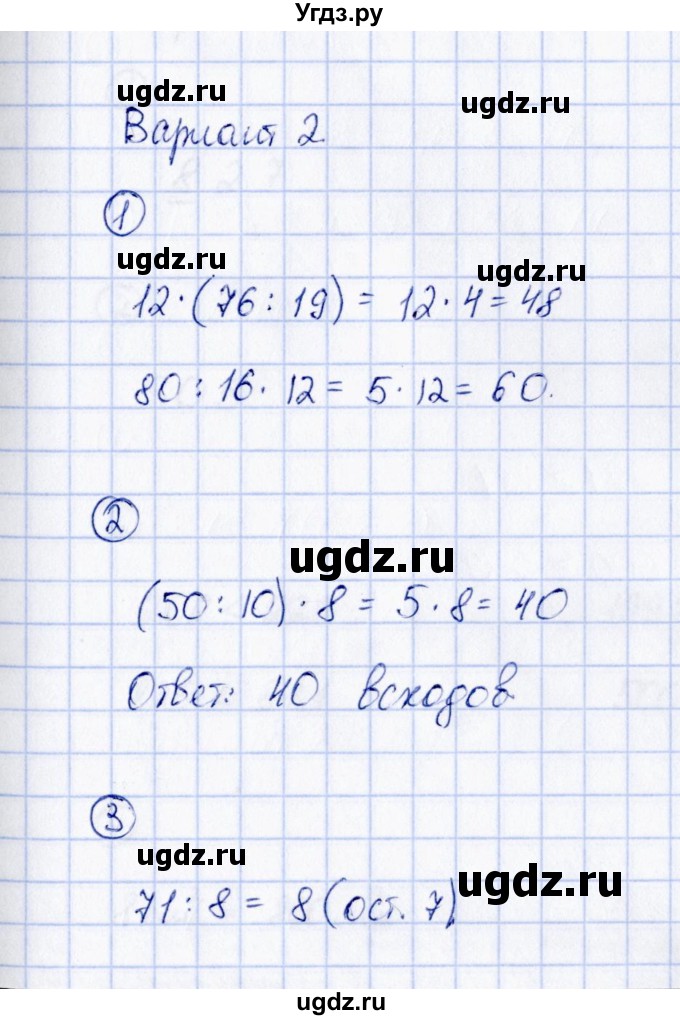 Угдз.ру
ugdz.ru
ugdz.ru
Вариант 2
1
ugdz.ru
ugdz.ru
12·(76:19) = 12·4=48
80:16·12= 5·12= 60.
2
ugdz.ru
(50:10)·8= 5·8= 40
Ответ: 40 всходов
3
ugdz.ru
ugdz.ru
71:8= 8(ост. 7)
ugdz.ru